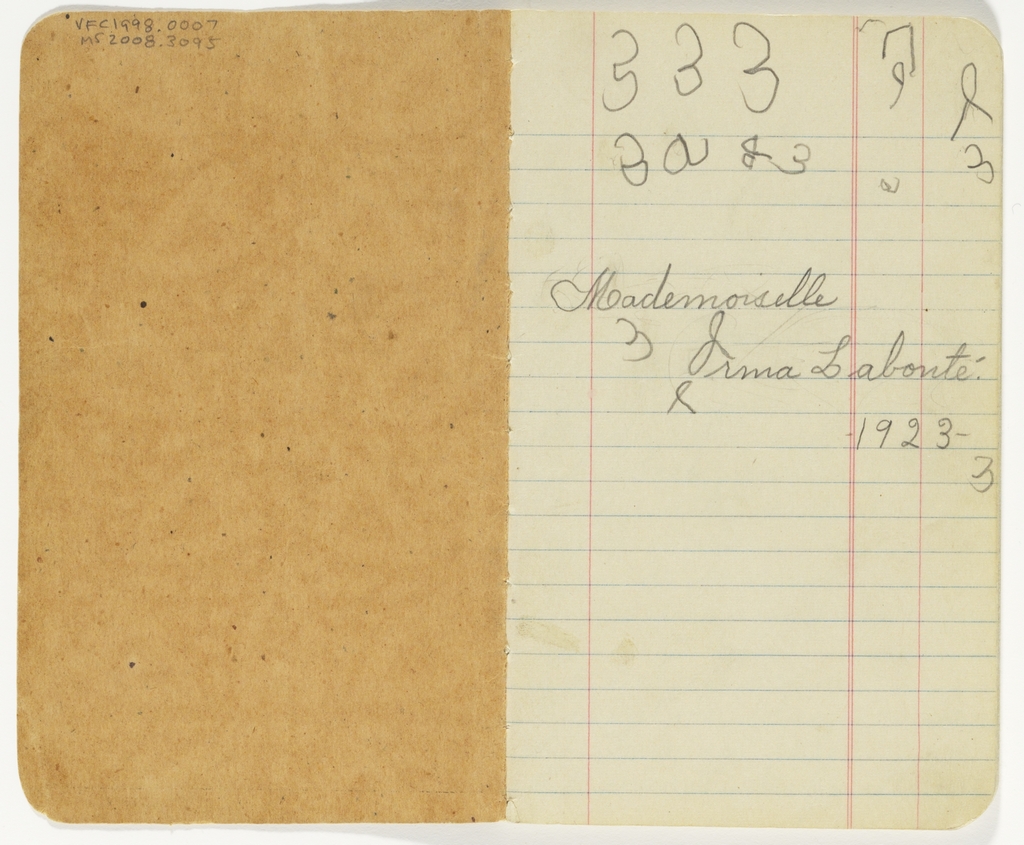 VFC1998.0007
MS 2008.3095
3 3 3
3 3
3
Mademoiselle
3
Irma Labonté.
-1923-
3